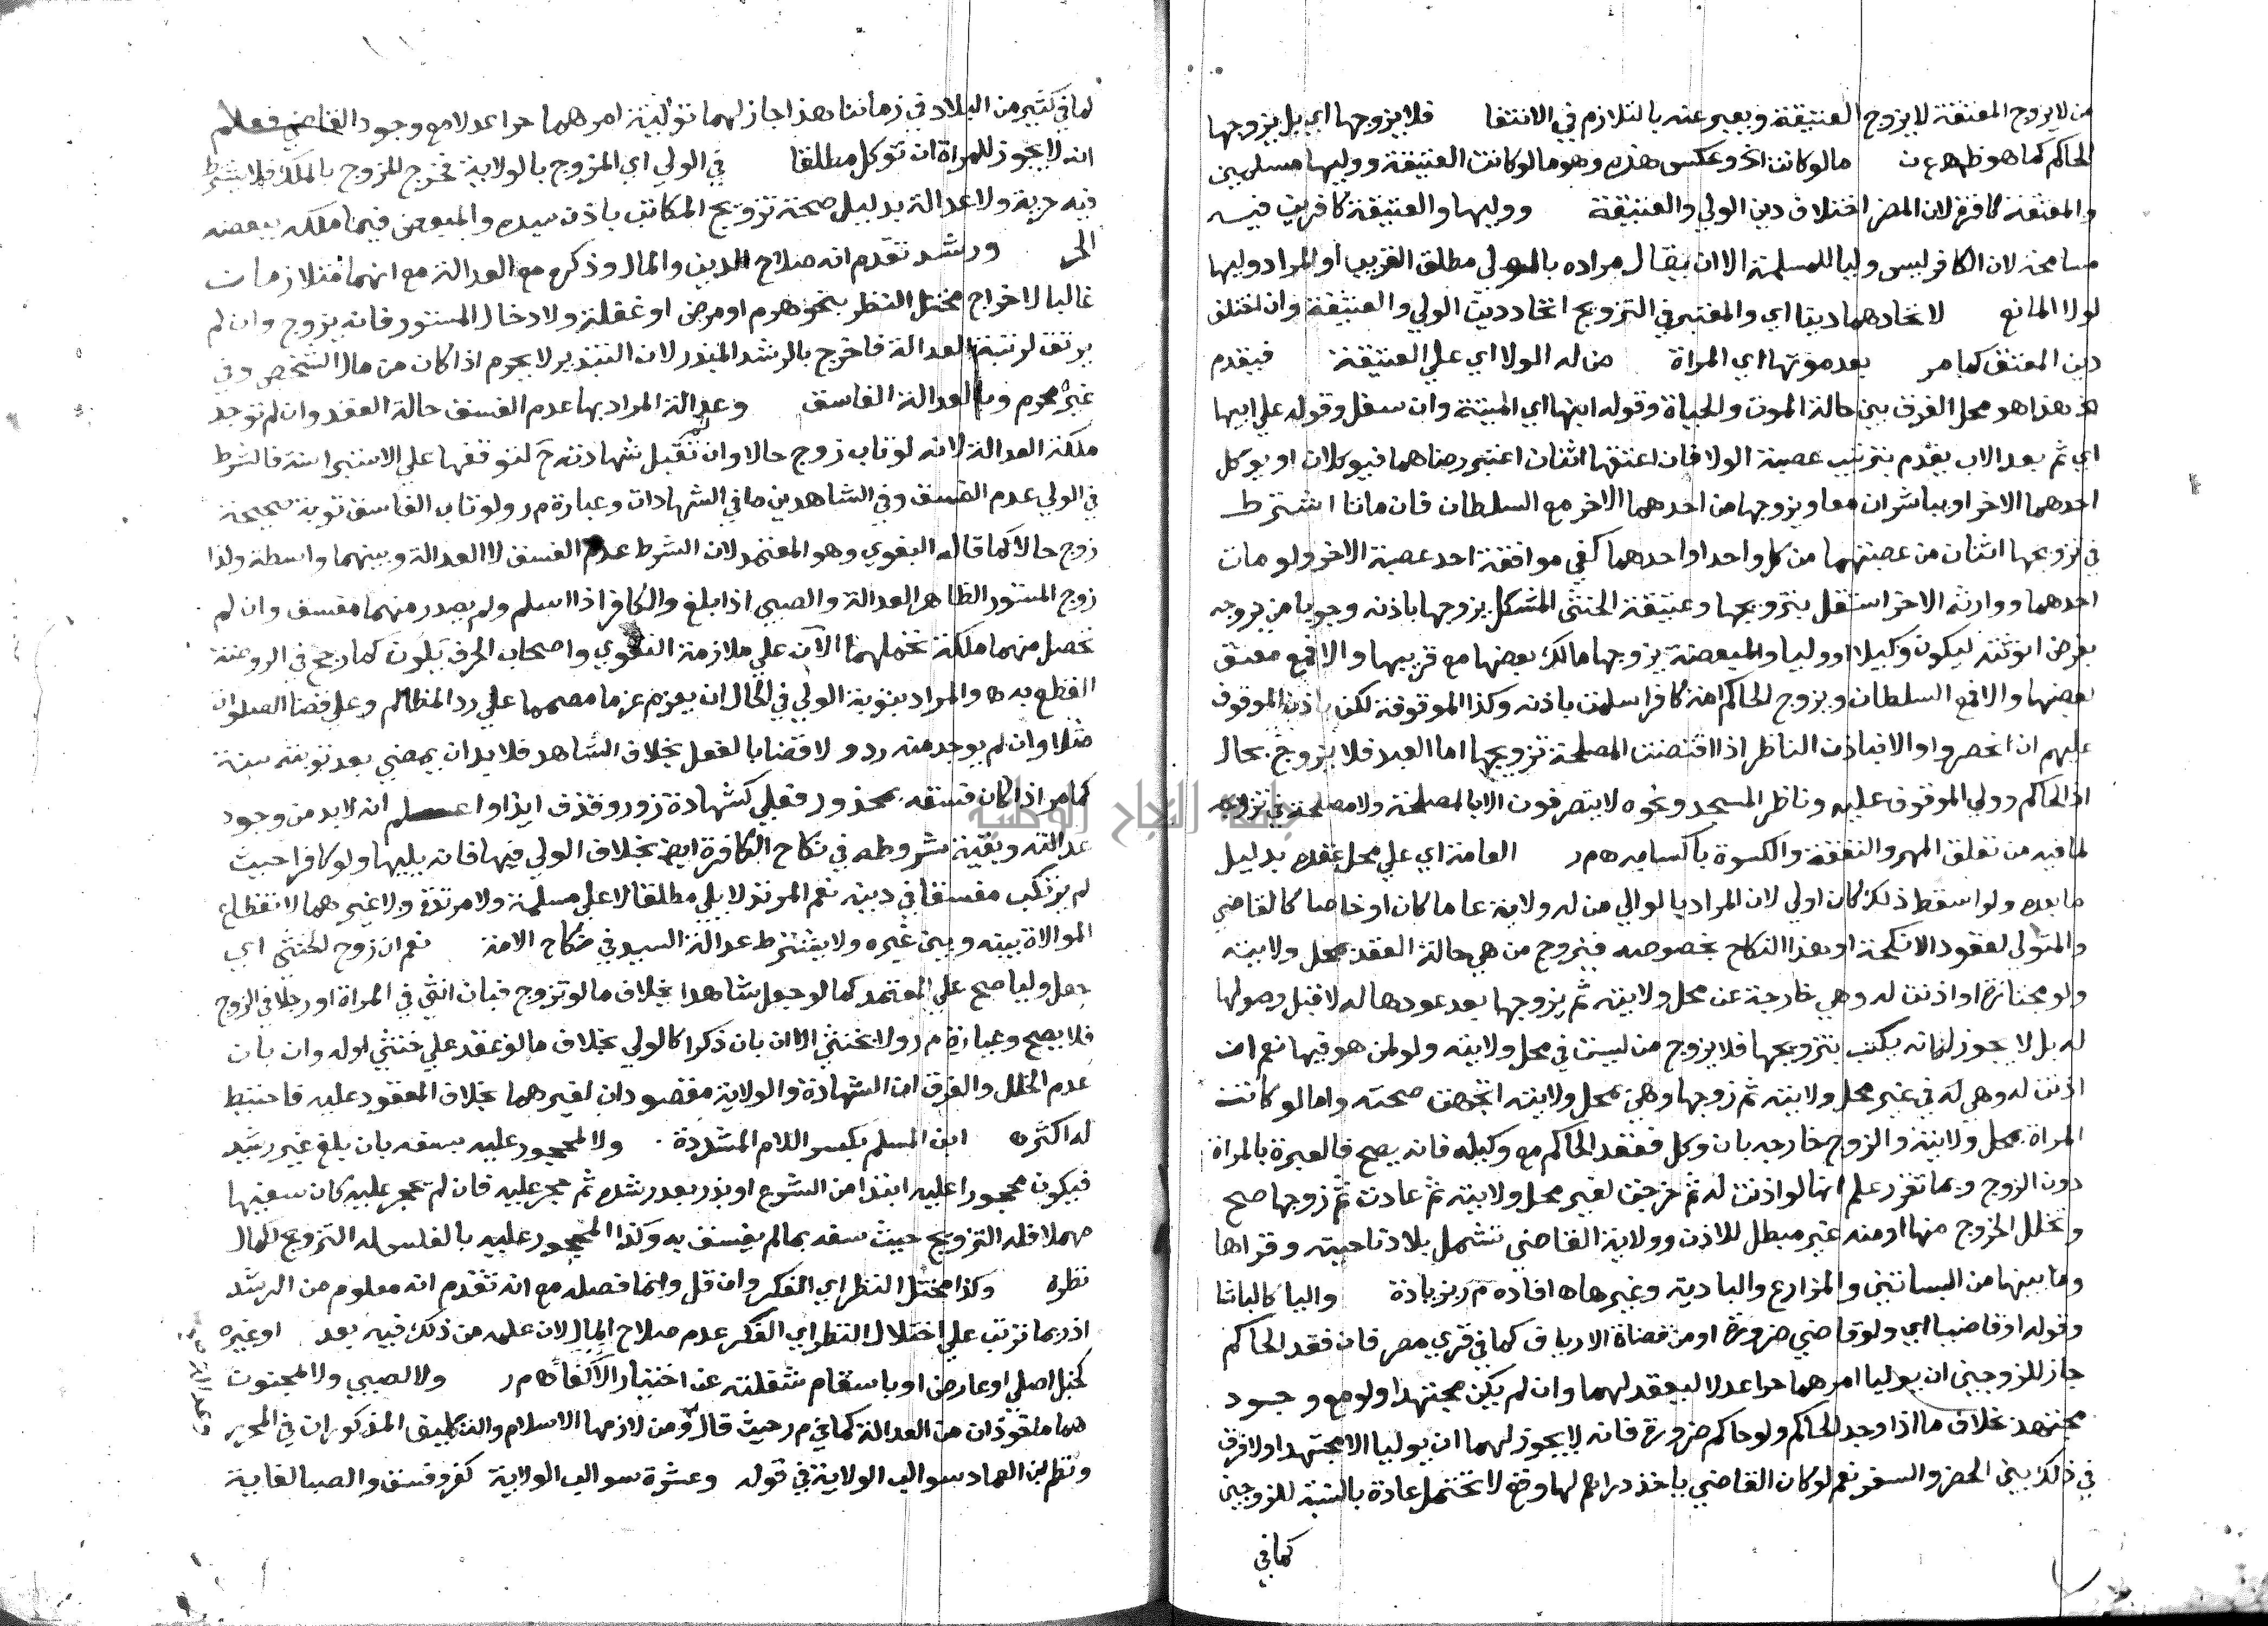 من لا يزوج المعتقة لا يزوج العتيقة ويعبر عنه بالتلازم في الانتفا فلا يزوجها اي بل يزوجها
الحاكم كما هو ظ ع ن ما لو كانت الخ وعكس هذه وهو ما لو كانت العتيقة ووليها مسلمين
والمعتقة كافرة لان المضر اختلاف دين الولي والعتيقة ووليها والعتيقة كافرين فيه
مسامحة لان الكافر ليس وليا للمسلمة الا ان يقال مراده بالولي مطلق القريب او المراد وليها
لولا المانع لاتحادهما دينا اي والمعتبر في التزويج اتحاد دين الولي والعتيقة وان اختلف
دين المعتق كما مر بعد موتها اي المراة من له الولا اي على العتيقة فيقدم
هذا هو محل الفرق بين حالة الموت والحياة وقوله ابنها اي الميتة وان سفل وقوله علي ابيها
اي ثم بعد الاب يقدم بترتيب عصبة الولا فان اعتقها اثنان اعتبر رضاهما فيوكلان او يوكل
احدهما الاخر او يباشران معا ويزوجها من احدهما الاخر مع السلطان فان ماتا اشترط
في تزويجها اثنان من عصبتهما من كل واحد او احدهما كفي موافقة احد عصبة الاخر ولو مات
احدهما ووارثه الاخر استقل بتزويجها وعتيقة الخنثى المشكل يزوجها باذنه وجوبا من يزوجه
بفرض انوثته ليكون وكيلا او وليا والمبعضة يزوجها مالك بعضها مع قريبها والا فمع معتق
بعضها والا فمع السلطان ويزوج الحاكم امة كافر اسلمت باذنه وكذا الموقوفة لكن باذن الموقوف
عليهم ان انحصروا والا فباذن الناظر اذا اقتضت المصلحة تزويجها اما العبد فلا يزوج بحال
اذ الحاكم وولي الموقوف عليه وناظر المسجد ونحوه لا يتصرفون الا بالمصلحة ولا مصلحة في تزوجه
لما فيه من تعلق المهر والنفقة والكسوة باكسابه ه م ر العامة اي علي محل عقده بدليل
ما بعده ولو اسقط ذلك كان اولي لان المراد بالوالي من له ولاية عاما كان او خاصا كالقاضي
والمتولي لعقود الانكحة او هذا النكاح بخصوصه فيزوج من هي حالة العقد بمحل ولايته
ولو مجتازة او اذنت له وهي خارجة عن محل ولايته ثم يزوجها بعد عودها له لا قبل وصولها
له بل لا يجوز له ان يكتب بتزويجها فلا يزوج من ليست في محل ولايته ولو لمن هو فيها نعم ان
اذنت له وهي له في غير محل ولايته ثم زوجها وهي بمحل ولايته اتجه صحته واما لو كانت
المراة بمحل ولايته والزوج خارجه بان وكل فعقد الحاكم مع وكيله فانه يصح فالعبرة بالمراة
دون الزوج وبما تقرر علم انها لو اذنت له ثم خرجت لغير محل ولايته ثم عادت ثم زوجها صح
وتخلل الخروج منها او منه غير مبطل للاذن وولاية القاضي تشمل بلاد ناحيته وقراها
وما بينها من البساتين والمزارع والبادية وغيرها ه افاده م ر بزيادة والبا كالباشا
وقوله او قاضيا اي ولو قاضي ضرورة او من قضاة الارياف كما في قري مصر فان فقد الحاكم
جاز للزوجين ان يوليا امرهما حرا عدلا ليعقد لهما وان لم يكن مجتهدا ولو مع وجود
مجتهد بخلاف ما اذا وجد الحاكم ولو حاكم ضرورة فانه لا يجوز لهما ان يوليا الا مجتهدا ولا فرق
في ذلك بين الحضر والسفر نعم لو كان القاضي ياخذ دراهم لها وقع لا تحتمل عادة بالنسبة للزوجين
كما في
لما في كثير من البلاد في زماننا هذا جاز لهما تولية امرهما حرا عدلا مع وجود القاضي فعلم
انه لا يجوز للمراة ان توكل مطلقا في الولي اي المزوج بالولاية فخرج المزوج بالملك فلا يشترط
فيه حرية ولا عدالة بدليل صحة تزويج المكاتب باذن سيده والمبعض فيما ملكه ببعضه
الحر ورشد تقدم انه صلاح الدين والمال وذكره مع العدالة مع انهما متلازمان
غالبا لاخراج مختل النظر بنحو هرم او مرض او غفلة ولا دخال المستور فانه يزوج وان لم
يرتق لرتبة العدالة فاخرج بالرشد المبذر لان التبذير لا يحرم اذا كان من مال الشخص وفي
غير محرم وبالعدالة الفاسق وعدالة المراد بها عدم الفسق حالة العقد وان لم توجد
ملكة العدالة لانه لو تاب زوج حالا وان لم تقبل شهادته ح لتوقفها علي الاستبرا سنة فالشرط
في الولي عدم الفسق وفي الشاهدين ما في الشهادات وعبارة م ر ولو تاب الفاسق توبة صحيحة
زوج حالا كما قاله البغوي وهو المعتمد لان الشرط عدم الفسق لا العدالة وبينهما واسطة ولذا
زوج المستور الظاهر العدالة والصبي اذا بلغ والكافر اذا اسلم ولم يصدر منهما مفسق وان لم
تحصل منهما ملكة تحملهما الآن علي ملازمة التقوي واصحاب الحرف يلون كما رجح في الروضة
القطع به ه والمراد بتوبة الولي في الحال ان يعزم عزما مصمما علي رد المظالم وعلي قضا الصلوات
مثلا وان لم يوجد منه رد ولا قضا بالفعل بخلاف الشاهد فلا بد ان يمضي بعد توبته سنة
كما مر اذا كان فسقه بمحذور فعلي كشهادة زور وقذف ايذا واعلم انه لا بد من وجود
عدالته وبقية شروطه في نكاح الكافرة ايض بخلاف الولي فيها فانه يليها ولو كافرا حيث
لم يرتكب مفسقا في دينه نعم المرتد لا يلي مطلقا لا علي مسلمة ولا مرتدة ولا غيرهما لانقطاع
الموالاة بينه وبين غيره ولا يشترط عدالة السيد في نكاح الامة نعم ان زوج الخنثي اي
جعل وليا صح علي المعتمد كما لو جعل شاهدا بخلاف ما لو تزوج فبان انثي في المراة او رجلا في الزوج
فلا يصح وعبارة م ر ولا بخنثي الا ان بان ذكرا كالولي بخلاف ما لو عقد علي خنثي اوله وان بان
عدم الخلل والفرق ان الشهادة والولاية مقصودان لغيرهما بخلاف المعقود عليه فاحتيط
له اكثر ه ابن المسلم بكسر اللام المشددة ولا المحجور عليه بسفه بان بلغ غير رشيد
فيكون محجورا عليه ابتدا من الشرع او بذر بعد رشده ثم حجر عليه فان لم يحجر عليه كان سفيها
مهملا فله التزويج حيث سفه بما لم يفسق به وكذا المحجور عليه بالفلس له التزويج لكمال
نظره وكذا مختل النظر اي الفكر وان قل وانما فصله مع انه تقدم انه معلوم من الرشد
اذ ربما ترتب علي اختلال النظر اي الفكر عدم صلاح المال لان علمه من ذلك فيه بعد او غيره
كخبل اصلي او عارض او باسقام شغلته عن اختيار الاكفا ه م ر ولا الصبي ولا المجنون
هما ماخوذان من العدالة كما في م ر حيث قال ومن لازمها الاسلام والتكليف المذكوران في المحرر
ونظم ابن العماد سوالب الولاية في قوله وعشرة سوالب الولاية كفر وفسق والصبا لغاية
جامعة النجاح الوطنية